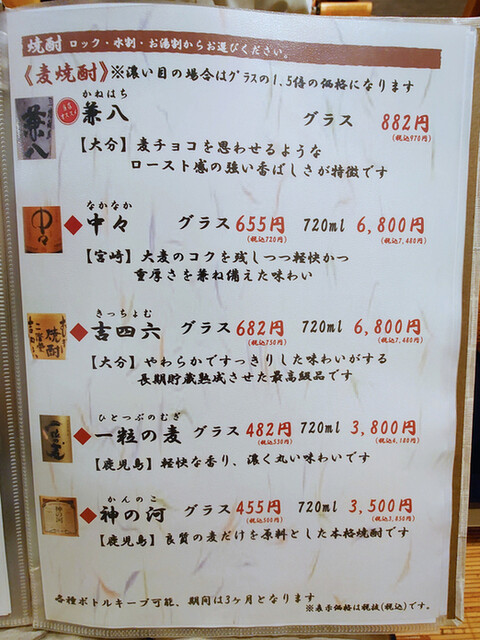 焼酎 ロック・水割・お湯割からお選びください。
《麦焼酎》※濃い目の場合はグラスの1.5倍の価格になります
かねはち
兼八 グラス 882円
(税込970円)
【大分】麦チョコを思わせるような
ロースト感の強い香ばしさが特徴です
なかなか
◆中々 グラス 655円 720ml 6,800円
(税込720円) (税込7,480円)
【宮崎】大麦のコクを残しつつ軽快かつ
重厚さを兼ね備えた味わい
きっちょむ
◆吉四六 グラス 682円 720ml 6,800円
(税込750円) (税込7,480円)
【大分】やわらかですっきりした味わいがする
長期貯蔵熟成させた最高級品です
ひとつぶのむぎ
◆一粒の麦 グラス 482円 720ml 3,800円
(税込530円) (税込4,180円)
【鹿児島】軽快な香り、濃く丸い味わいです
かんのこ
◆神の河 グラス 455円 720ml 3,500円
(税込500円) (税込3,850円)
【鹿児島】良質の麦だけを原料とした本格焼酎です
各種ボトルキープ可能、期間は3ヶ月となります
※表示価格は税抜(税込)です。
兼八
中々
焼酎
神の河